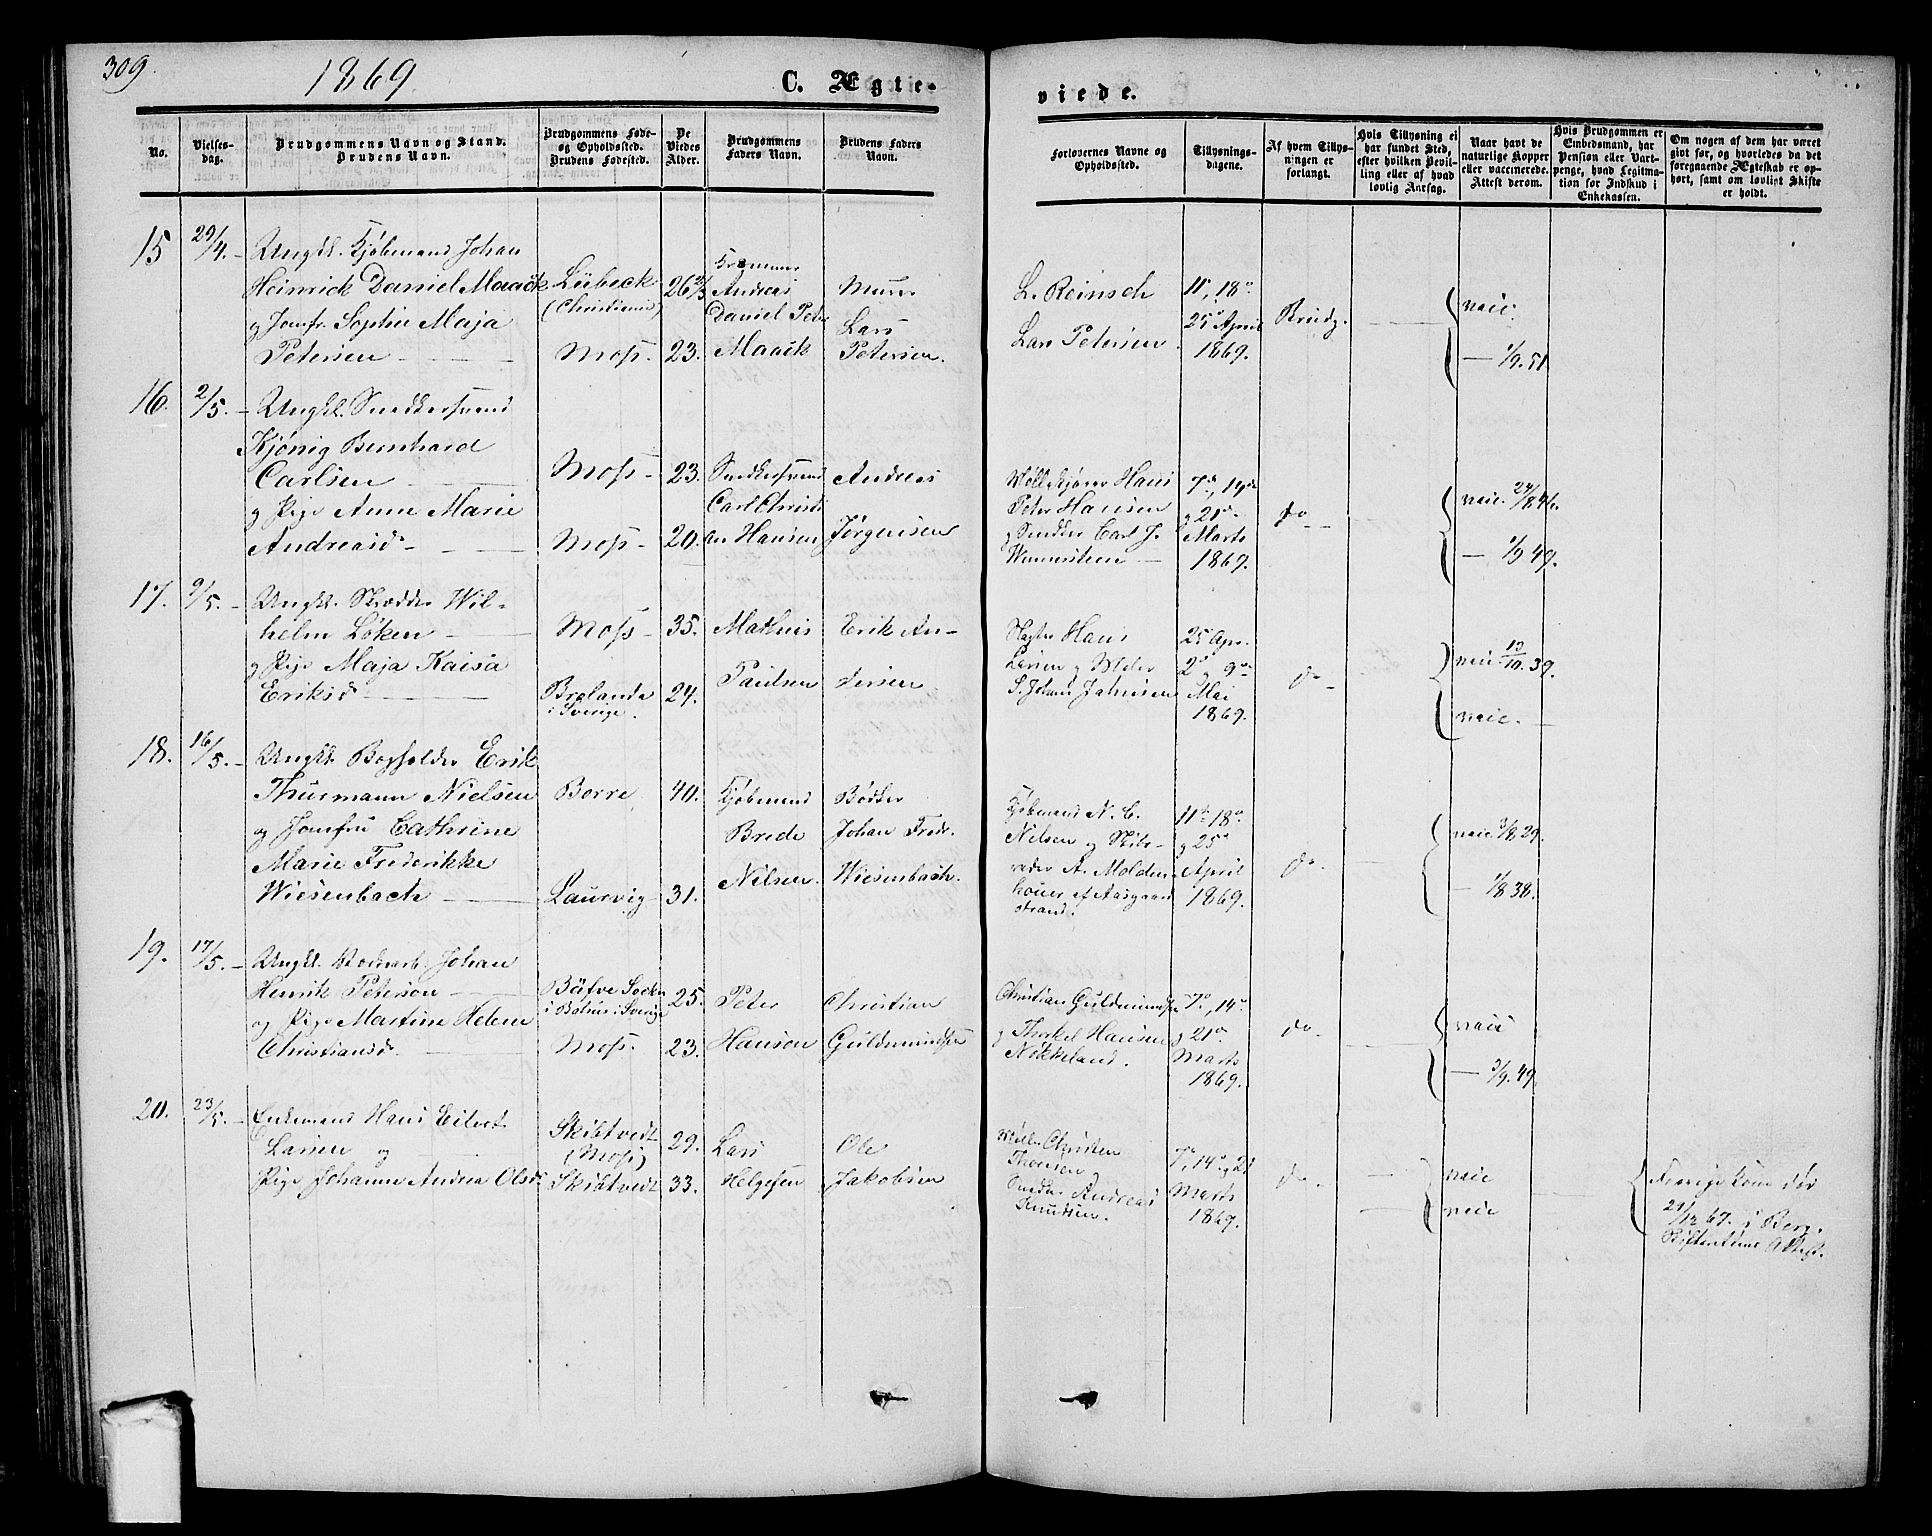 309.
1869
C. Ægte-
viede.
No.
Vielses-
dag.
Brudgommens Navn og Stand.
Brudens Navn.
Brudgommens Føde-
og Opholdssted.
Brudens Fødested.
De
Viedes
Alder.
Brudgommens
Faders Navn.
Brudens Faders
Navn.
Forlovernes Navne og
Opholdssted.
Tillysnings-
dagene.
Af hvem Tillys-
ningen er
forlangt.
Hvis Tillysning ei
har fundet Sted,
efter hvilken Bevil-
ling eller af hvad
lovlig Aarsag.
Naar havt de
naturlige Kopper
eller vaccinerede.
Attest derom.
Hvis Brudgommen er
Embedsmand, har
Pension eller Vart-
penge, hvad Legitima-
tion for Indskud i
Enkekassen.
Om nogen af dem har været
givt før, og hvorledes da det
foregaaende Ægteskab er op-
hørt, samt om lovligt Skifte
er holdt.
15 29/4. Ungkl. Kjøbmand Johan
Heinrich Daniel Maack
og Jomfr. Sophie Maja
Petersen
Lübeck
(Christiania)
Moss.
26 2/3
23.
Andreas
Daniel Peter
Maack
Murer
Lars
Petersen.
L. Reinsch
Lars Petersen
11te, 18de
25de April
1869.
Brudg.
vacc.
— 1/9. 51
16. 2/5. Ungkl. Snedkersvend
Kjönig Bernhard
Carlsen
og Pige Anne Marie
Andreasd.
Moss
Moss
23.
20.
Snedkersvend
Carl Christi
an Hansen
Andreas
Jørgensen
Møllekjører Hans
Peter Hansen
og Snedker Carl J.
Wennersteen
7de, 14de
og 21de
Marts
1869.
do
vacc. 24/8 46.
— 1/9 49.
17. 9/5. Ungkl. Skrædder Wil-
helm Løken
og Pige Maja Kaisa
Eriksd.
Moss
Brelanda
i Sverige.
35.
24.
Mathias
Paulsen
Erik An-
dersen
Slagter Hans
Larsen og
S. Johan Jahnsen
25 Apr.
2den 9de
Mai
1869.
do
vacc. 13/10. 39.
vacc.
18. 16/5. Ungkl. Bogholder Erik
Thurmann Nielsen
og Jomfru Cathrine
Marie Frederikke
Wiesenbach
Borre
Laurvig
40.
31.
Kjøbmand
Brede
Nilsen.
Bødker
Johan Fredr.
Wiesenbach.
Kjøbmand N. C.
Nilsen og Skibs-
reder A. Molden-
houer af Aasgaard
strand.
11te 18de
og 25de
April
1869.
do.
vacc 3/8. 29.
— 1/8 38.
19. 17/5. Ungkl. Johan
Henrik Peterson
og Pige Martine Helene
Christiansd.
Båfve Socken
i Bahus i Sverige
Moss.
25.
23.
Peter
Hanson
Christian
Guldmundsen
Christian Guldmundsen
og Thorkel Hansen
Nøkkeland.
7de, 14de
og 21de
Marts
1869.
do.
vacc
— 3/9. 49.
20. 23/5. Enkemand Hans Eilert
Larsen og
Pige Johanne Andrea Olsd.
Skibtvedt
(Moss)
Skibtvedt
29.
33.
Lars
Helgesen
Ole
Jakobsen
Møller Christen
Thoresen og
Snedker Andreas
Knudsen.
7de, 14de og 21
Marts
1869.
do.
vacc
vacc
Forrige Kone død
29/12 67. i Borg.
Skifterettens Attest.